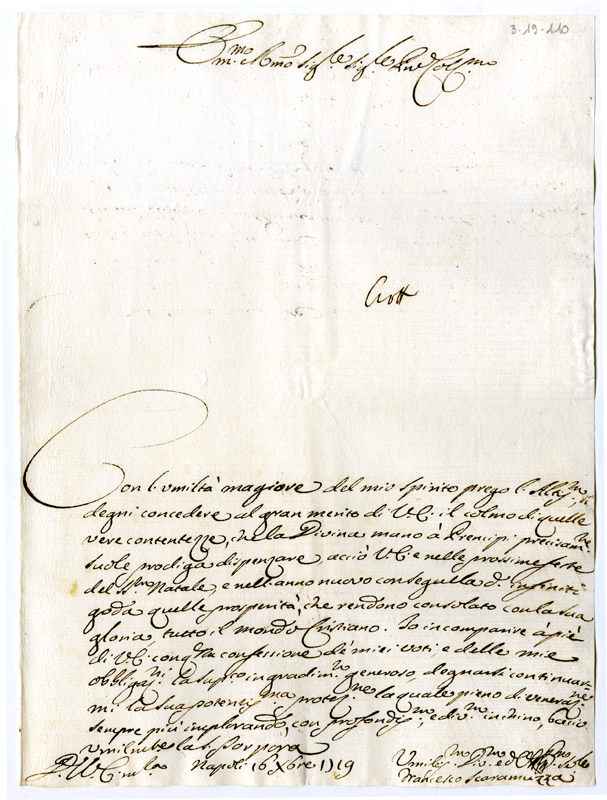 3-19-110
Em.mo e R.mo Sig.re Sig.re Pne Col.mo
Con l'umiltà magiore del mio spirito prego l'Altis.mo, si
degni concedere al gran merito di V.E. il colmo di quelle
vere contentezze, che la Divina mano à Prencipi precisam.te
suole prodiga dispenzare, acciò V.E. e nelle prossime feste
del S.mo Natale, e nell'anno nuovo conseguilla d'infiniti
goda quelle prosperità, che rendono consolato con la sua
gloria tutto il mondo Cristiano. Io incomparire à piè
di V.E. con q.ta confessione de miei voti e delle mie
obbligaz.ni la supp.co in gradim.to generoso, degnarsi continuar
mi la sua potentis.ma protez.ne la quale pieno di veneraz.ne
sempre più implorando, con profondis.mo, e div.mo inchino, bacio
umilmente la s. Porpora
D. V. Em.za Napoli 16 Xbre 1719
Umilis.mo Div.mo ed Obblig.mo
Francesco Scaramuzza